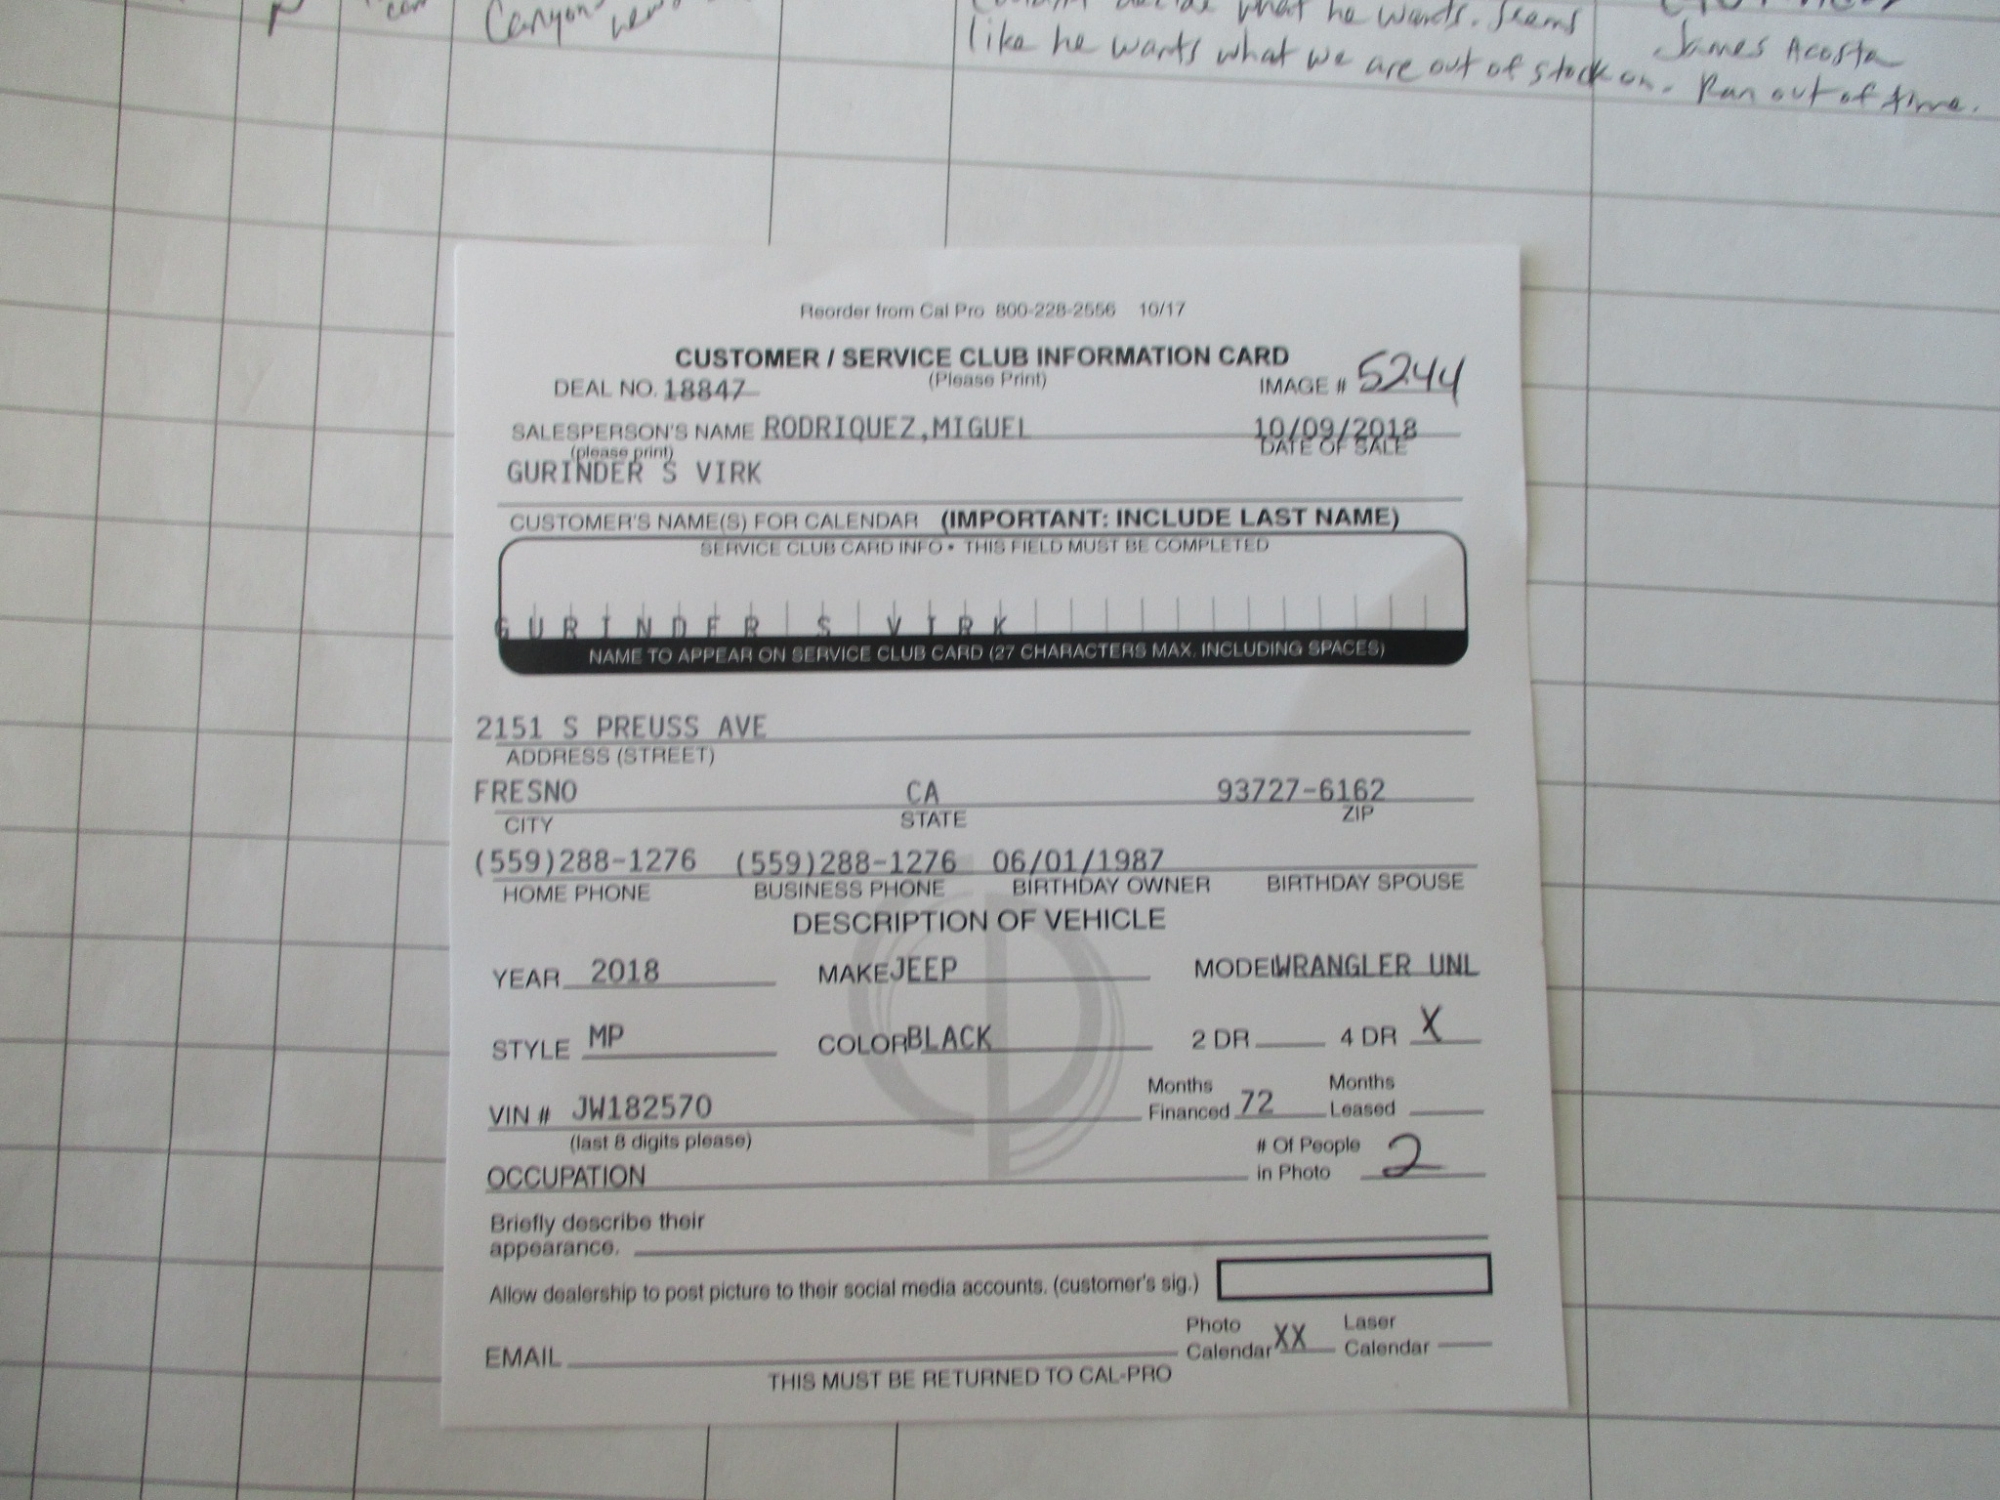 can
Canyon
what he wants. Seems
like he wants what we are out of stock on. Ran out of time.
James Acosta
Reorder from Cal Pro 800-228-2556 10/17
CUSTOMER / SERVICE CLUB INFORMATION CARD
(Please Print)
DEAL NO. 18847
IMAGE # 5244
SALESPERSON'S NAME RODRIQUEZ,MIGUEL 10/09/2018
(please print) DATE OF SALE
GURINDER S VIRK
CUSTOMER'S NAME(S) FOR CALENDAR (IMPORTANT: INCLUDE LAST NAME)
SERVICE CLUB CARD INFO • THIS FIELD MUST BE COMPLETED
GURINDER S VIRK
NAME TO APPEAR ON SERVICE CLUB CARD (27 CHARACTERS MAX. INCLUDING SPACES)
2151 S PREUSS AVE
ADDRESS (STREET)
FRESNO CA 93727-6162
CITY STATE ZIP
(559)288-1276 (559)288-1276 06/01/1987
HOME PHONE BUSINESS PHONE BIRTHDAY OWNER BIRTHDAY SPOUSE
DESCRIPTION OF VEHICLE
YEAR 2018 MAKE JEEP MODEL WRANGLER UNL
STYLE MP COLOR BLACK 2 DR 4 DR X
VIN # JW182570 Months Financed 72 Months Leased
(last 8 digits please)
OCCUPATION # Of People in Photo 2
Briefly describe their
appearance.
Allow dealership to post picture to their social media accounts. (customer's sig.)
EMAIL Photo Calendar XX Laser Calendar
THIS MUST BE RETURNED TO CAL-PRO